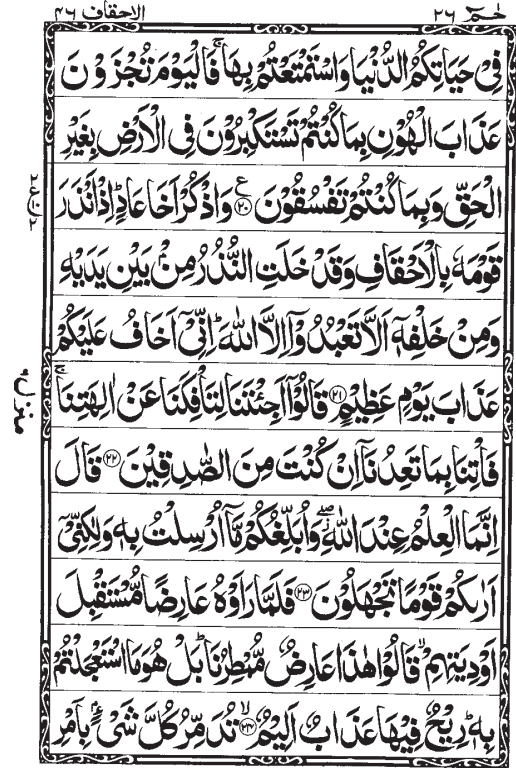 حٰمٓ ٢٦
الاحقاف ٤٦
فِیْ حَیَاتِكُمُ الدُّنْیَا وَاسْتَمْتَعْتُمْ بِهَا ۚ فَالْیَوْمَ تُجْزَوْنَ
عَذَابَ الْهُوْنِ بِمَا كُنْتُمْ تَسْتَكْبِرُوْنَ فِی الْاَرْضِ بِغَیْرِ
الْحَقِّ وَبِمَا كُنْتُمْ تَفْسُقُوْنَ ۧ ﴿۲۰﴾ وَاذْكُرْ اَخَا عَادٍ ؕ اِذْ اَنْذَرَ
قَوْمَهٗ بِالْاَحْقَافِ وَقَدْ خَلَتِ النُّذُرُ مِنْۢ بَیْنِ یَدَیْهِ
وَمِنْ خَلْفِهٖۤ اَلَّا تَعْبُدُوْۤا اِلَّا اللّٰهَ ؕ اِنِّیْۤ اَخَافُ عَلَیْكُمْ
عَذَابَ یَوْمٍ عَظِیْمٍ ﴿۲۱﴾ قَالُوْۤا اَجِئْتَنَا لِتَاْفِكَنَا عَنْ اٰلِهَتِنَا ۚ
فَاْتِنَا بِمَا تَعِدُنَاۤ اِنْ كُنْتَ مِنَ الصّٰدِقِیْنَ ﴿۲۲﴾ قَالَ
اِنَّمَا الْعِلْمُ عِنْدَ اللّٰهِ ۖؗ وَاُبَلِّغُكُمْ مَّاۤ اُرْسِلْتُ بِهٖ وَلٰكِنِّیْۤ
اَرٰىكُمْ قَوْمًا تَجْهَلُوْنَ ﴿۲۳﴾ فَلَمَّا رَاَوْهُ عَارِضًا مُّسْتَقْبِلَ
اَوْدِیَتِهِمْ ۙ قَالُوْا هٰذَا عَارِضٌ مُّمْطِرُنَا ؕ بَلْ هُوَ مَا اسْتَعْجَلْتُمْ
بِهٖ ؕ رِیْحٌ فِیْهَا عَذَابٌ اَلِیْمٌ ۙ ﴿۲۴﴾ تُدَمِّرُ كُلَّ شَیْءٍۭ بِاَمْرِ
منزل ٦